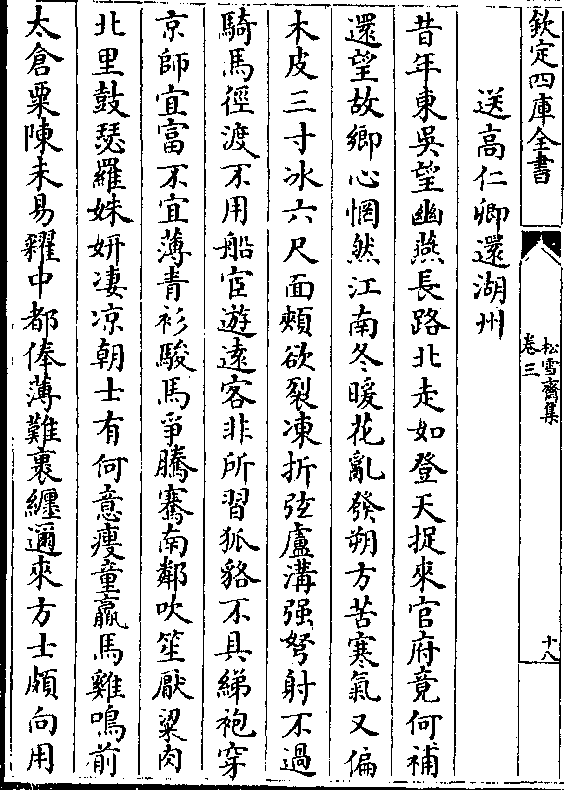 欽定四庫全書
松雪齋集
卷三
十八
送高仁卿還湖州
昔年東吳望幽燕長路北走如登天捉來官府竟何補
還望故鄉心惘然江南冬暖花亂發朔方苦寒氣又偏
木皮三寸冰六尺面頰欲裂凍折弦盧溝强弩射不過
騎馬徑渡不用船宦遊遠客非所習狐貉不具綈袍穿
京師宜富不宜薄青衫駿馬爭騰騫南鄰吹笙厭粱肉
北里鼓瑟羅姝妍凄凉朝士有何意瘦童羸馬雞鳴前
太倉粟陳未易糴中都俸薄難裹纏邇來方士頗向用